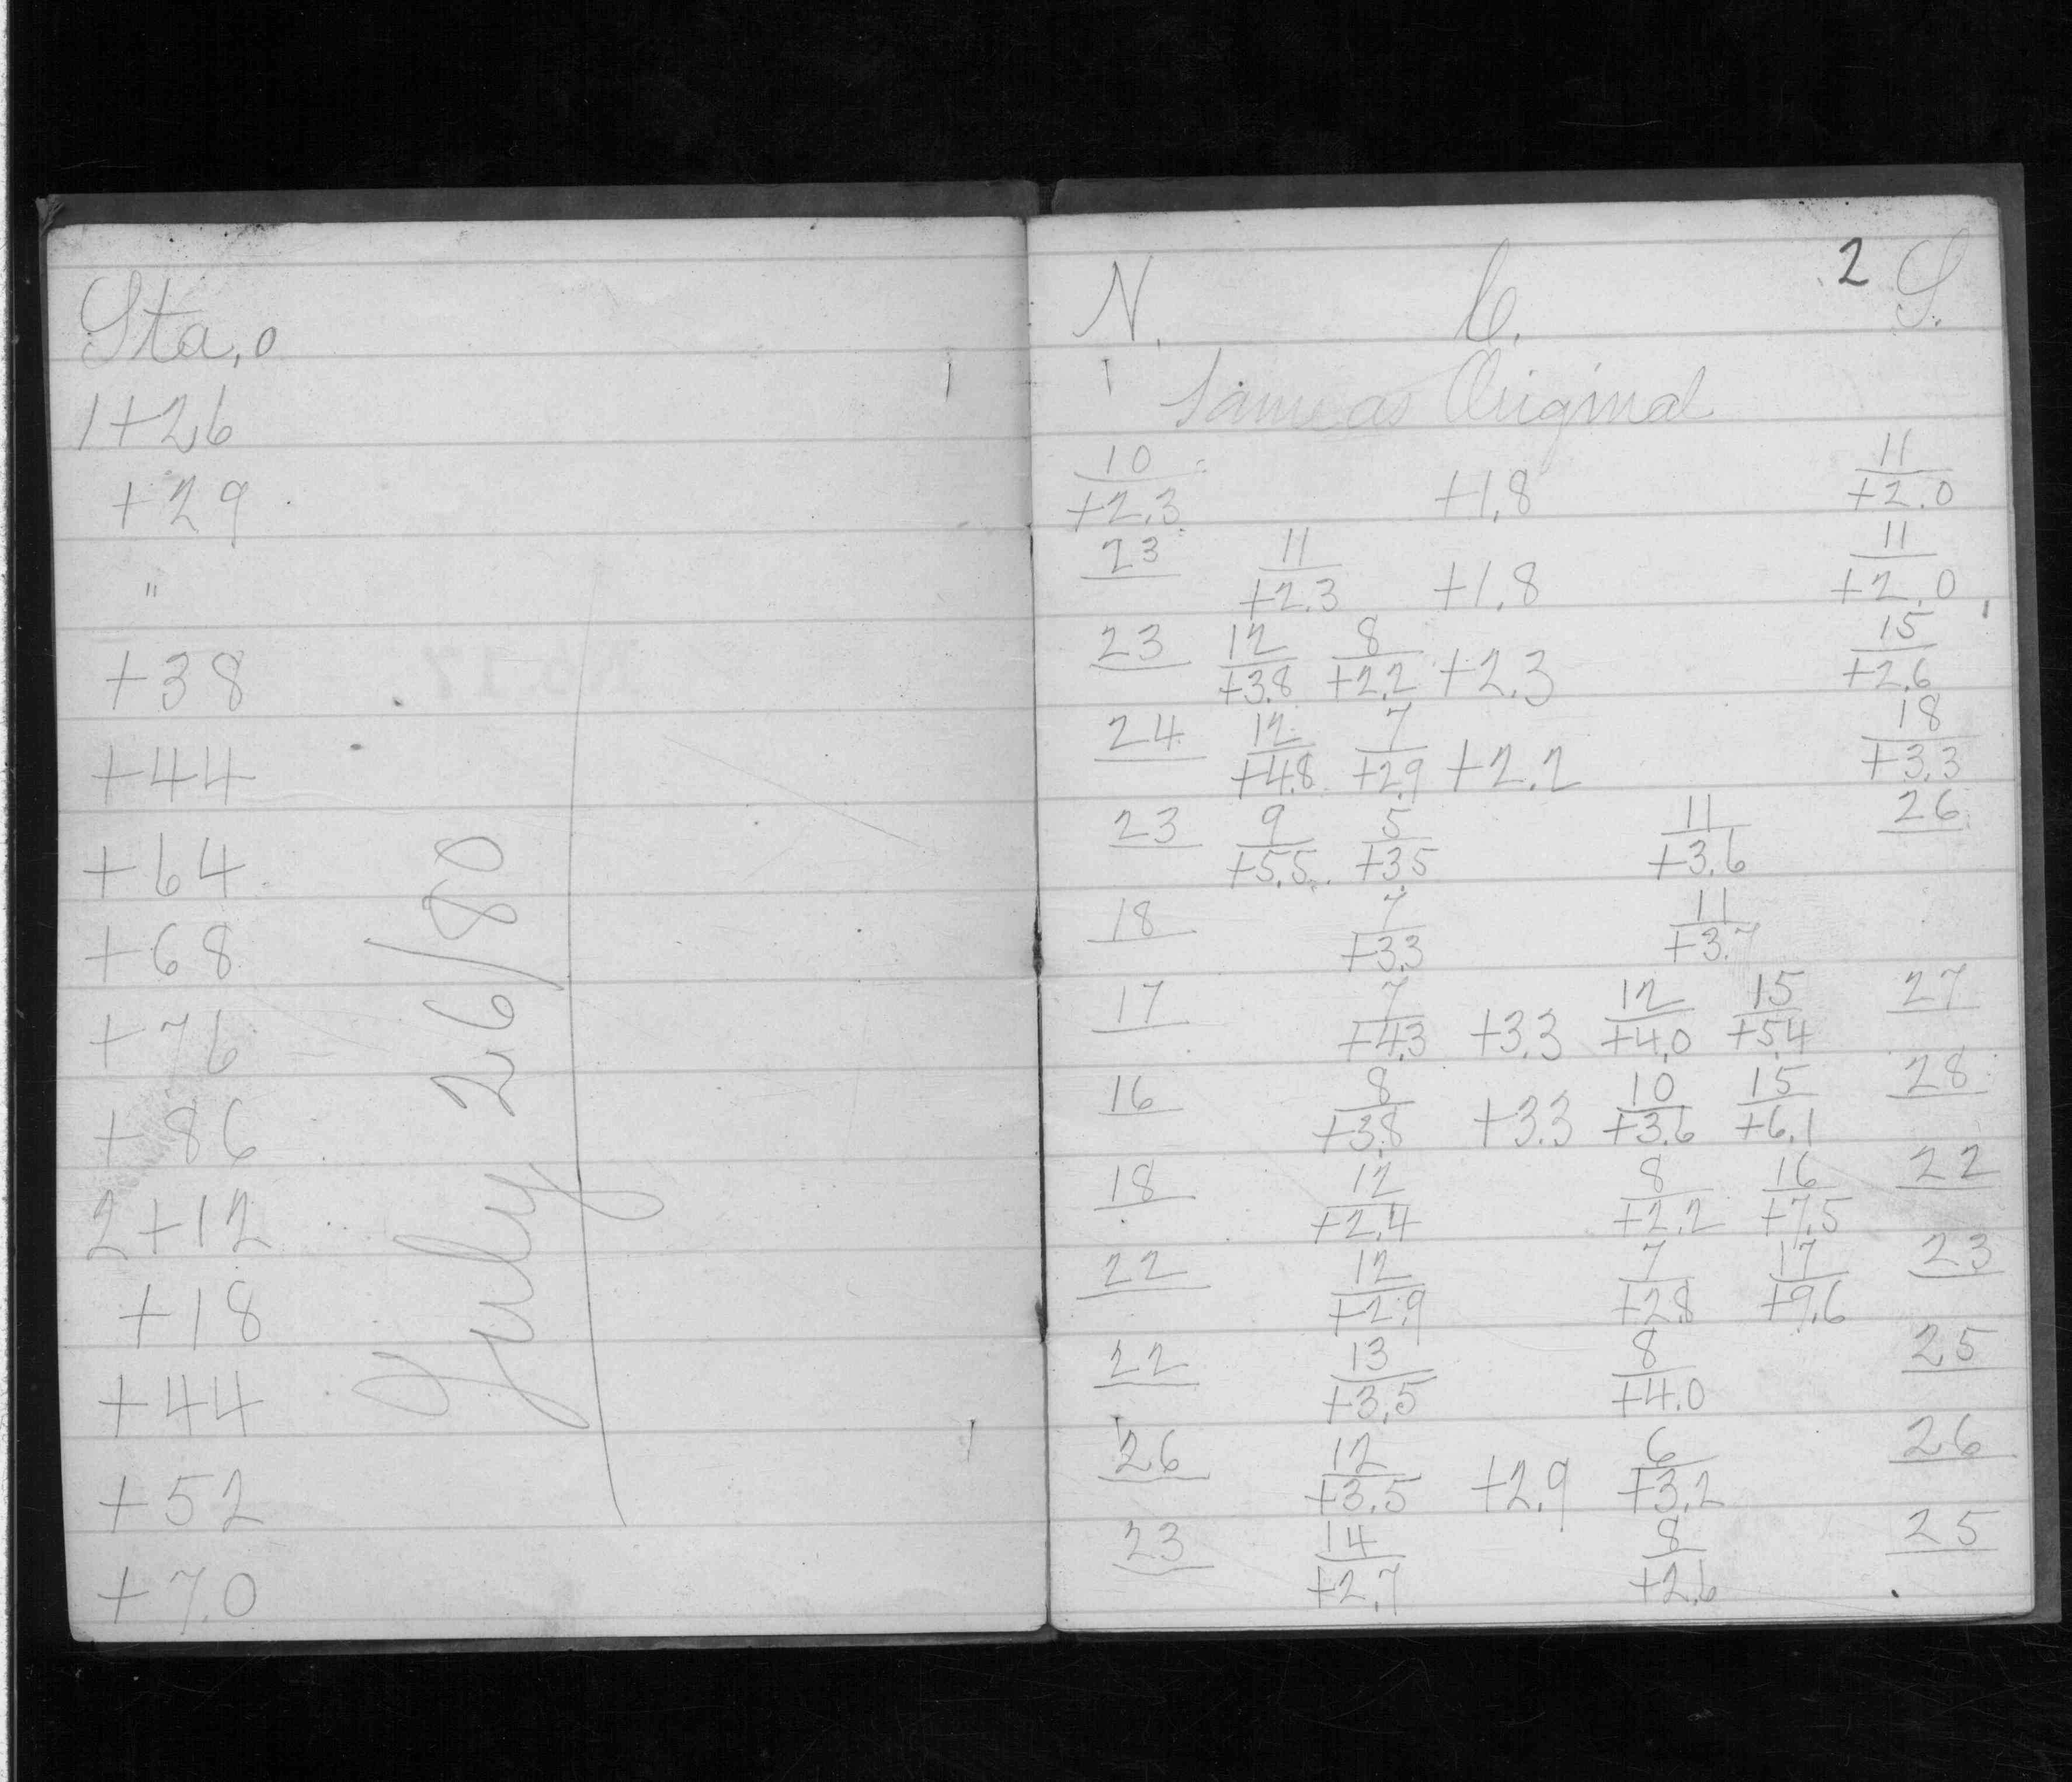 Sta, 0
1+26
+29
"
+38
+44
+64
+68
+76
+86
2+12
+18
+44
+52
+70
July 26/80
2
N. C. S.
Same as Original
10/+2.3 +1.8 11/+2.0
23 11/+2.3 +1.8 11/+2.0
23 12/+3.8 8/+2.2 +2.3 15/+2.6
24 12/+4.8 7/+2.9 +2.2 18/+3.3
23 9/+5.5 5/+3.5 11/+3.6 26
18 7/+3.3 11/+3.7
17 7/+4.3 +3.3 12/+4.0 15/+5.4 27
16 8/+3.8 +3.3 10/+3.6 15/+6.1 28
18 12/+2.4 8/+2.2 16/+7.5 22
22 12/+2.9 7/+2.8 17/+9.6 23
22 13/+3.5 8/+4.0 25
26 12/+3.5 +2.9 6/+3.2 26
23 14/+2.7 8/+2.6 25